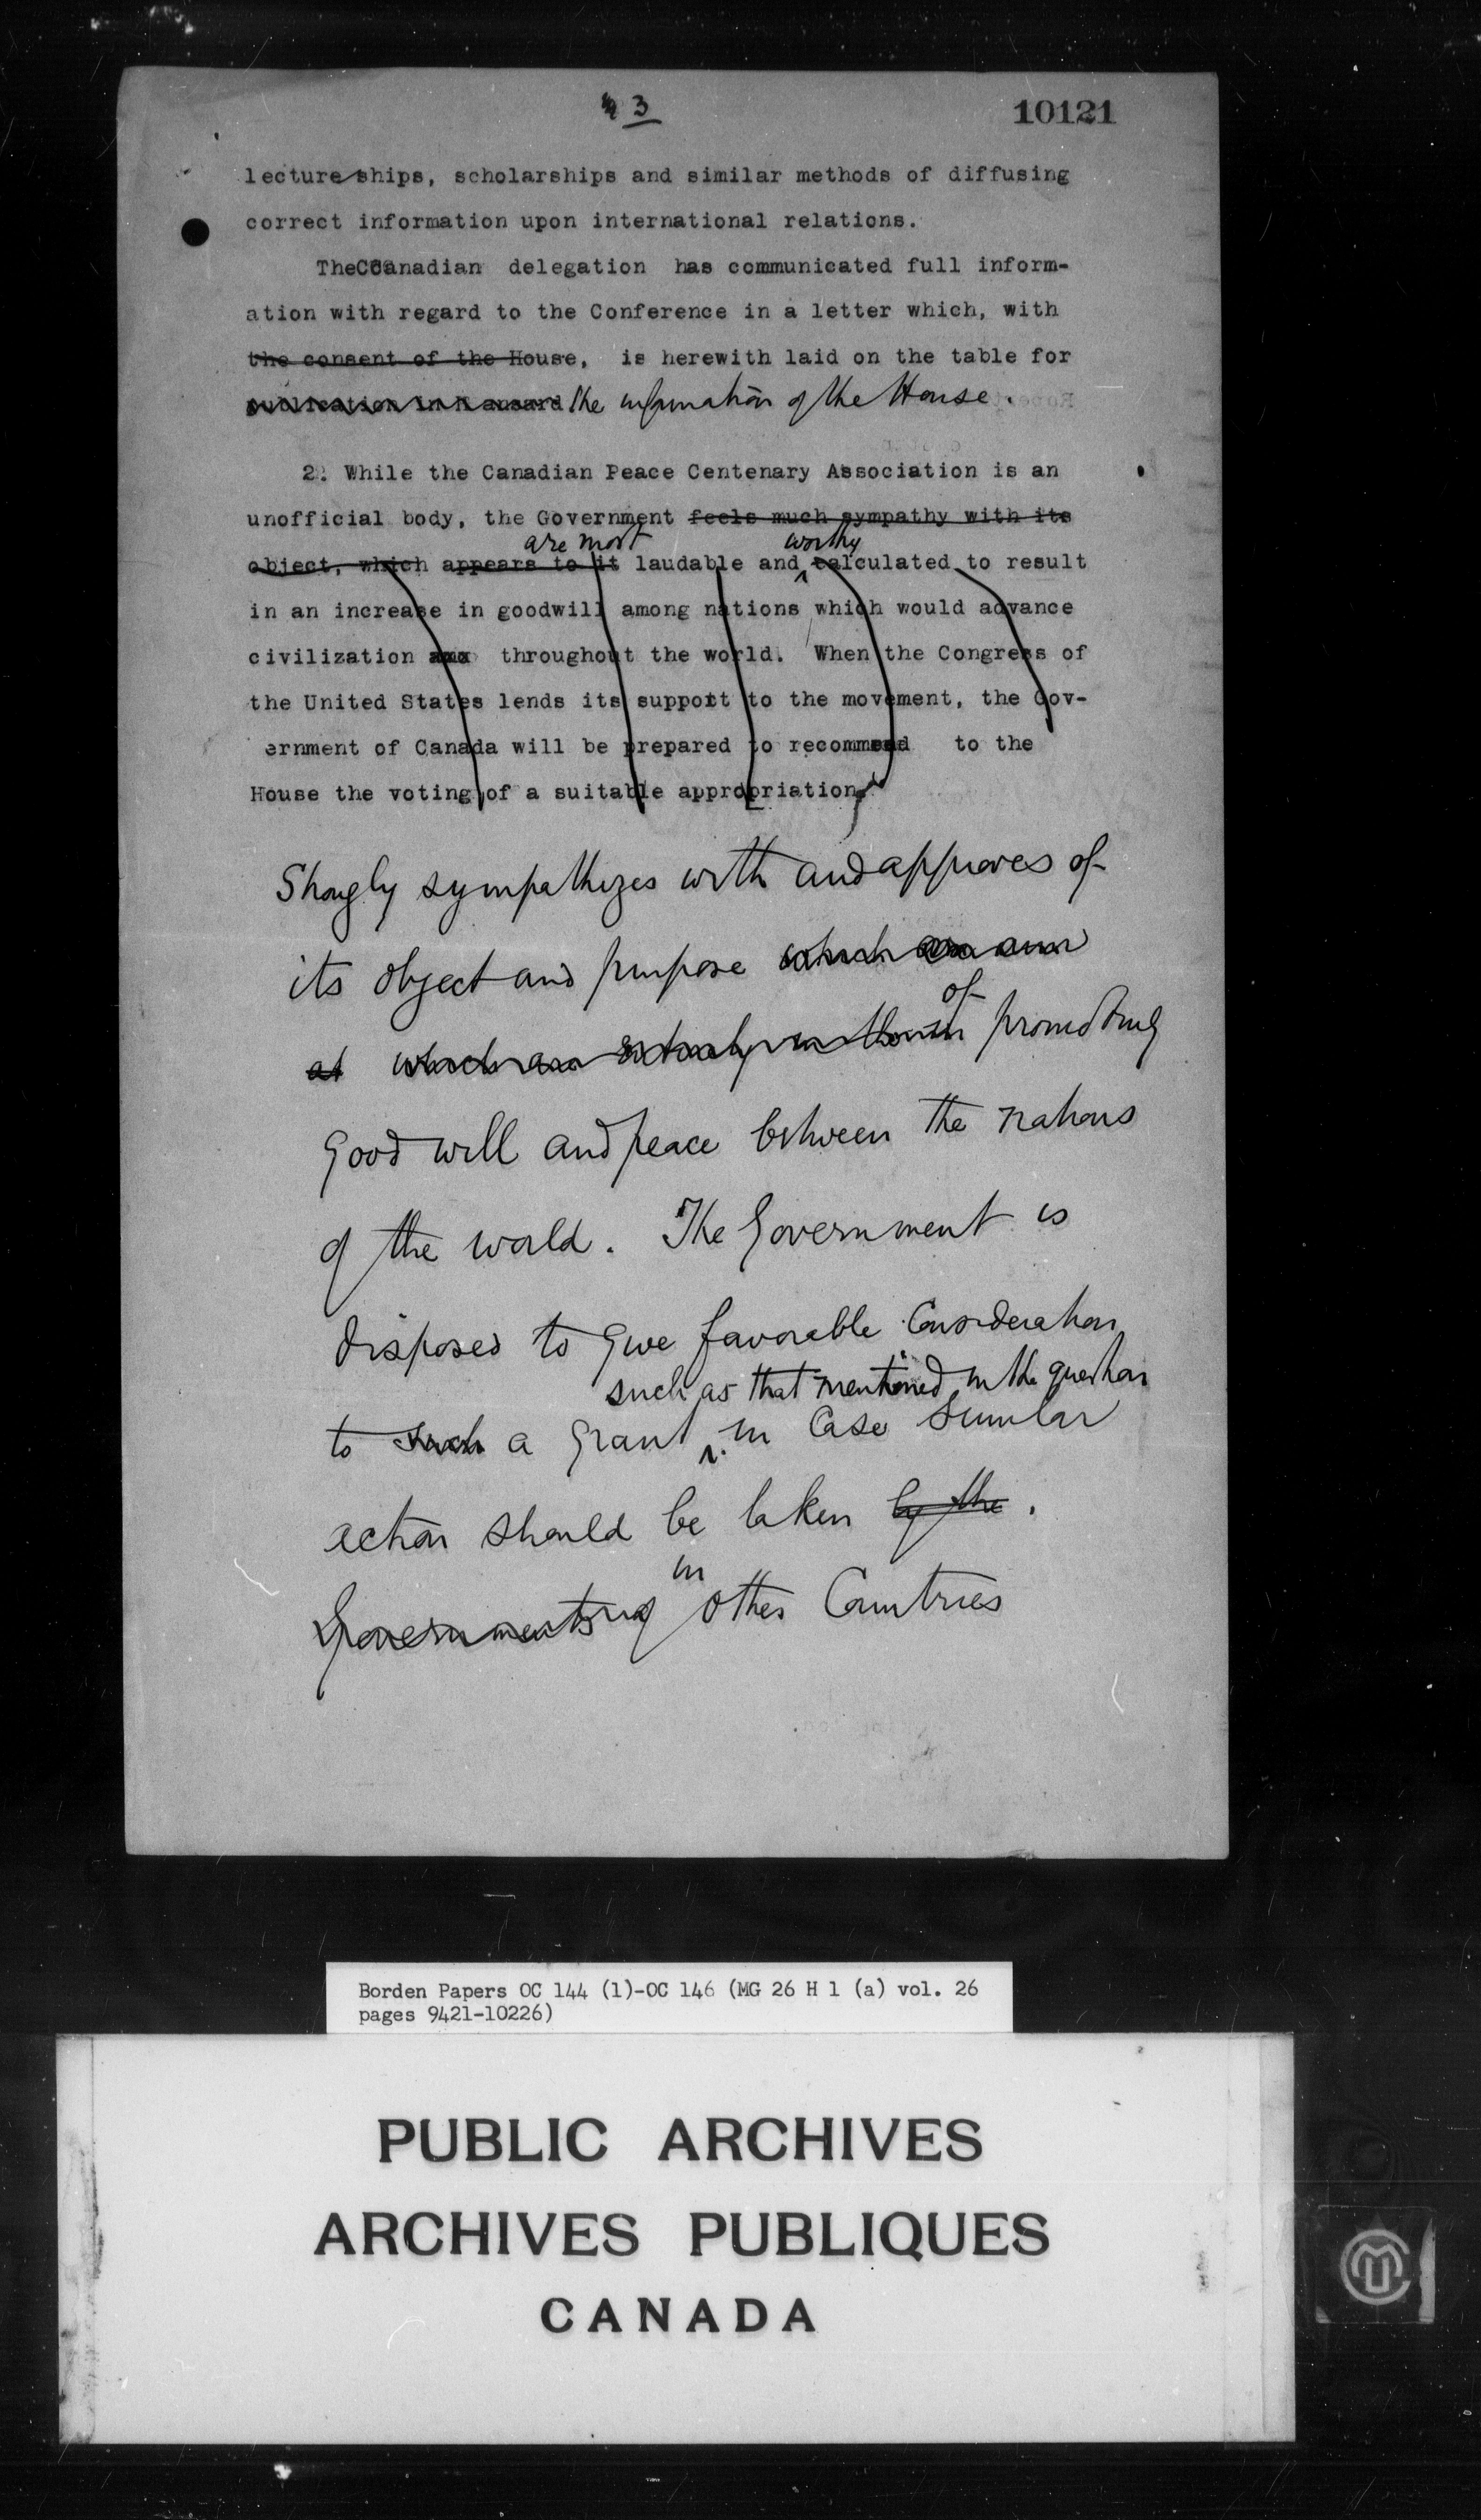 3
10121
lectureships, scholarships and similar methods of diffusing
correct information upon international relations.
TheCCanadian delegation has communicated full inform-
ation with regard to the Conference in a letter which, with
the consent of the House, is herewith laid on the table for
publication in Hansard the information of the House.
2. While the Canadian Peace Centenary Association is an
unofficial body, the Government feels much sympathy with its
are most worthy
object, which appears to it laudable and calculated to result
in an increase in goodwill among nations which would advance
civilization throughout the world. When the Congress of
the United States lends its support to the movement, the Gov-
ernment of Canada will be prepared to recommend to the
House the voting of a suitable appropriation
Strongly sympathizes with and approves of
its object and purpose which are
of
at which are in promoting
good will and peace between the nations
of the world. The Government is
disposed to give favorable consideration
such as that mentioned in the question
to such a grant in case similar
action should be taken by the.
in
Governments of other Countries
Borden Papers OC 144 (1)-OC 146 (MG 26 H 1 (a) vol. 26
pages 9421-10226)
PUBLIC ARCHIVES
ARCHIVES PUBLIQUES
CANADA